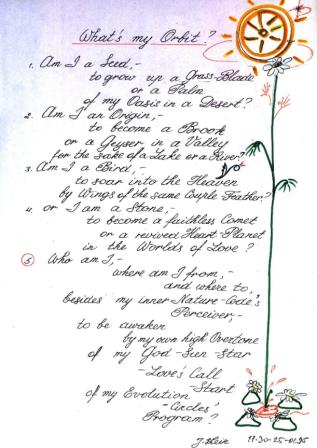 What's my Orbit?
1. Am I a Seed,-
to grow up a Grass-Blade
or a Palm
of my Oasis in a Desert?
2. Am I an Origin,-
to become a Brook
or a Geyser in a Valley
for the sake of a Lake or a River?
3. Am I a Bird,-
to soar into the Heaven
by Wings of the same Couple Feather?
4. or I am a Stone,-
to become a faithless Comet
or a revived Heart-Planet
in the Worlds of Love?
5. Who am I,-
where am I from,-
and where to,
besides my inner-Nature-Code's
Perceiver,-
to be awaken
by my own high Overtone
of my God-Sun-Star
-Love's Call
-Start
of my Evolution
-Circles'
Program?
11.30-25-01.95